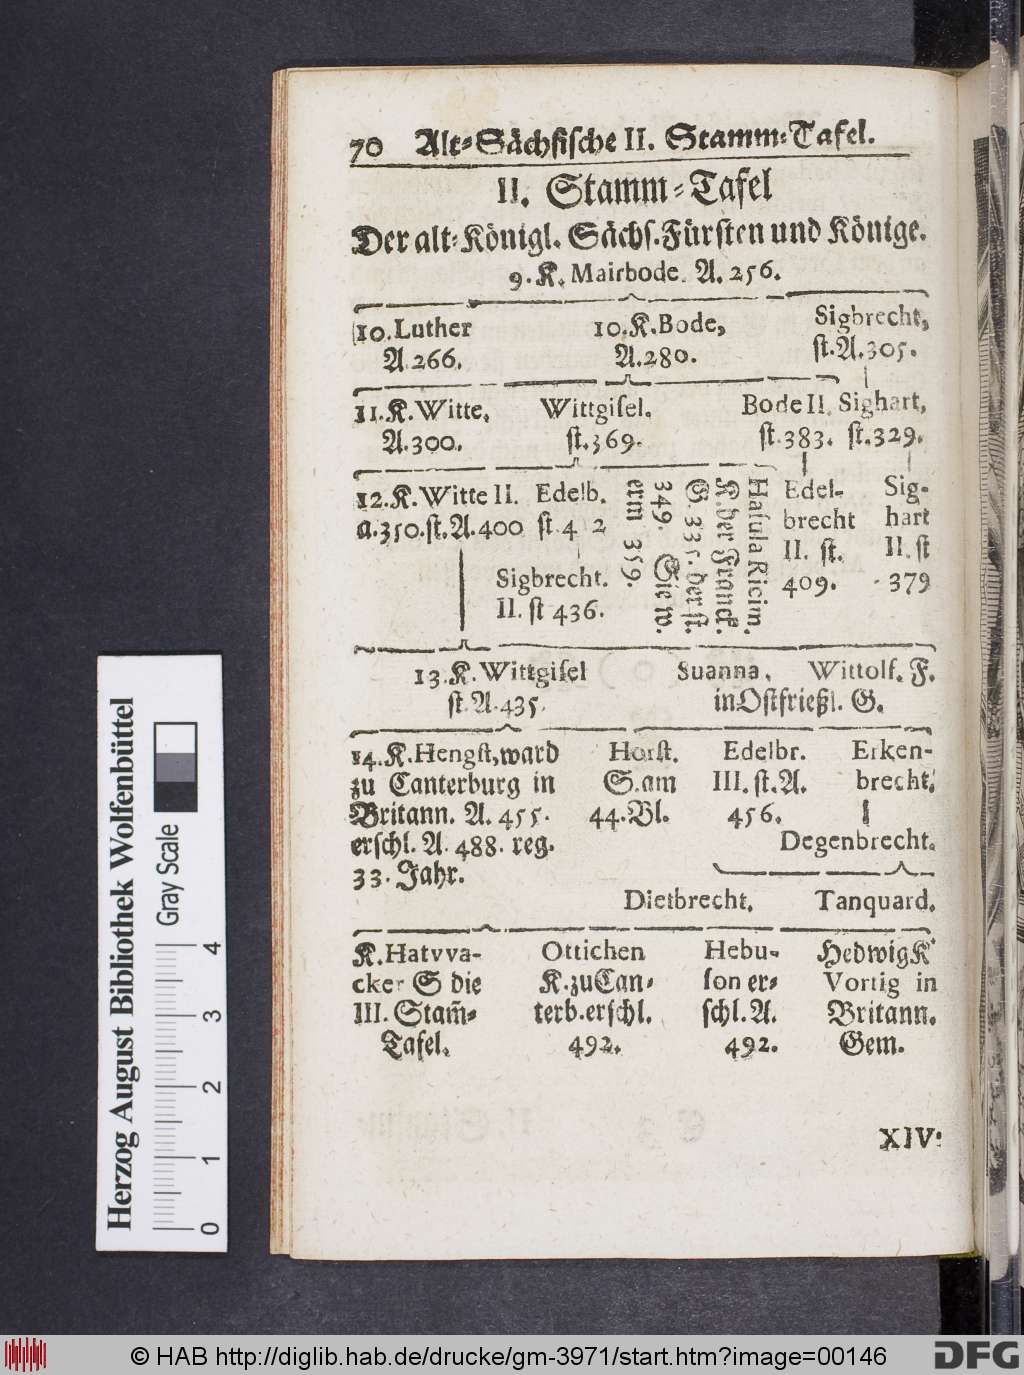 70 Alt-Sächsische II. Stamm-Tafel.
II. Stamm-Tafel
Der alt-Königl. Sächs. Fürsten und Könige.
9. K. Mairbode. A. 256.
10. Luther 10. K. Bode, Sigbrecht,
A. 266. A. 280. st. A. 305.
11. K. Witte, Wittgisel. Bode II. Sighart,
A. 300. st. 369. st. 383. st. 329.
12. K. Witte II. Edelb.
a. 350. st. A. 400 st 4 2
Sigbrecht.
II. st 436.
Hasula Ricim.
K. der Franck.
G. 335. der st.
349. Sie w.
erm 359.
Edel-
brecht
II. st.
409.
Sig-
hart
II. st
379
13. K. Wittgisel Suanna, Wittolf. F.
st. A. 435. in Ostfrießl. G.
14. K. Hengst, ward
zu Canterburg in
Britann. A. 455.
erschl. A. 488. reg.
33. Jahr.
Horst.
S. am
44. Bl.
Edelbr.
III. st. A.
456.
Erken-
brecht.
Degenbrecht.
Dietbrecht. Tanquard.
K. Hatvva-
cker S die
III. Stam̃-
Tafel.
Ottichen
K. zu Can-
terb. erschl.
492.
Hebu-
son er-
schl. A.
492.
Hedwig K
Vortig in
Britann.
Gem.
XIV.
Herzog August Bibliothek Wolfenbüttel
Gray Scale
0 1 2 3 4
© HAB http://diglib.hab.de/drucke/gm-3971/start.htm?image=00146
DFG